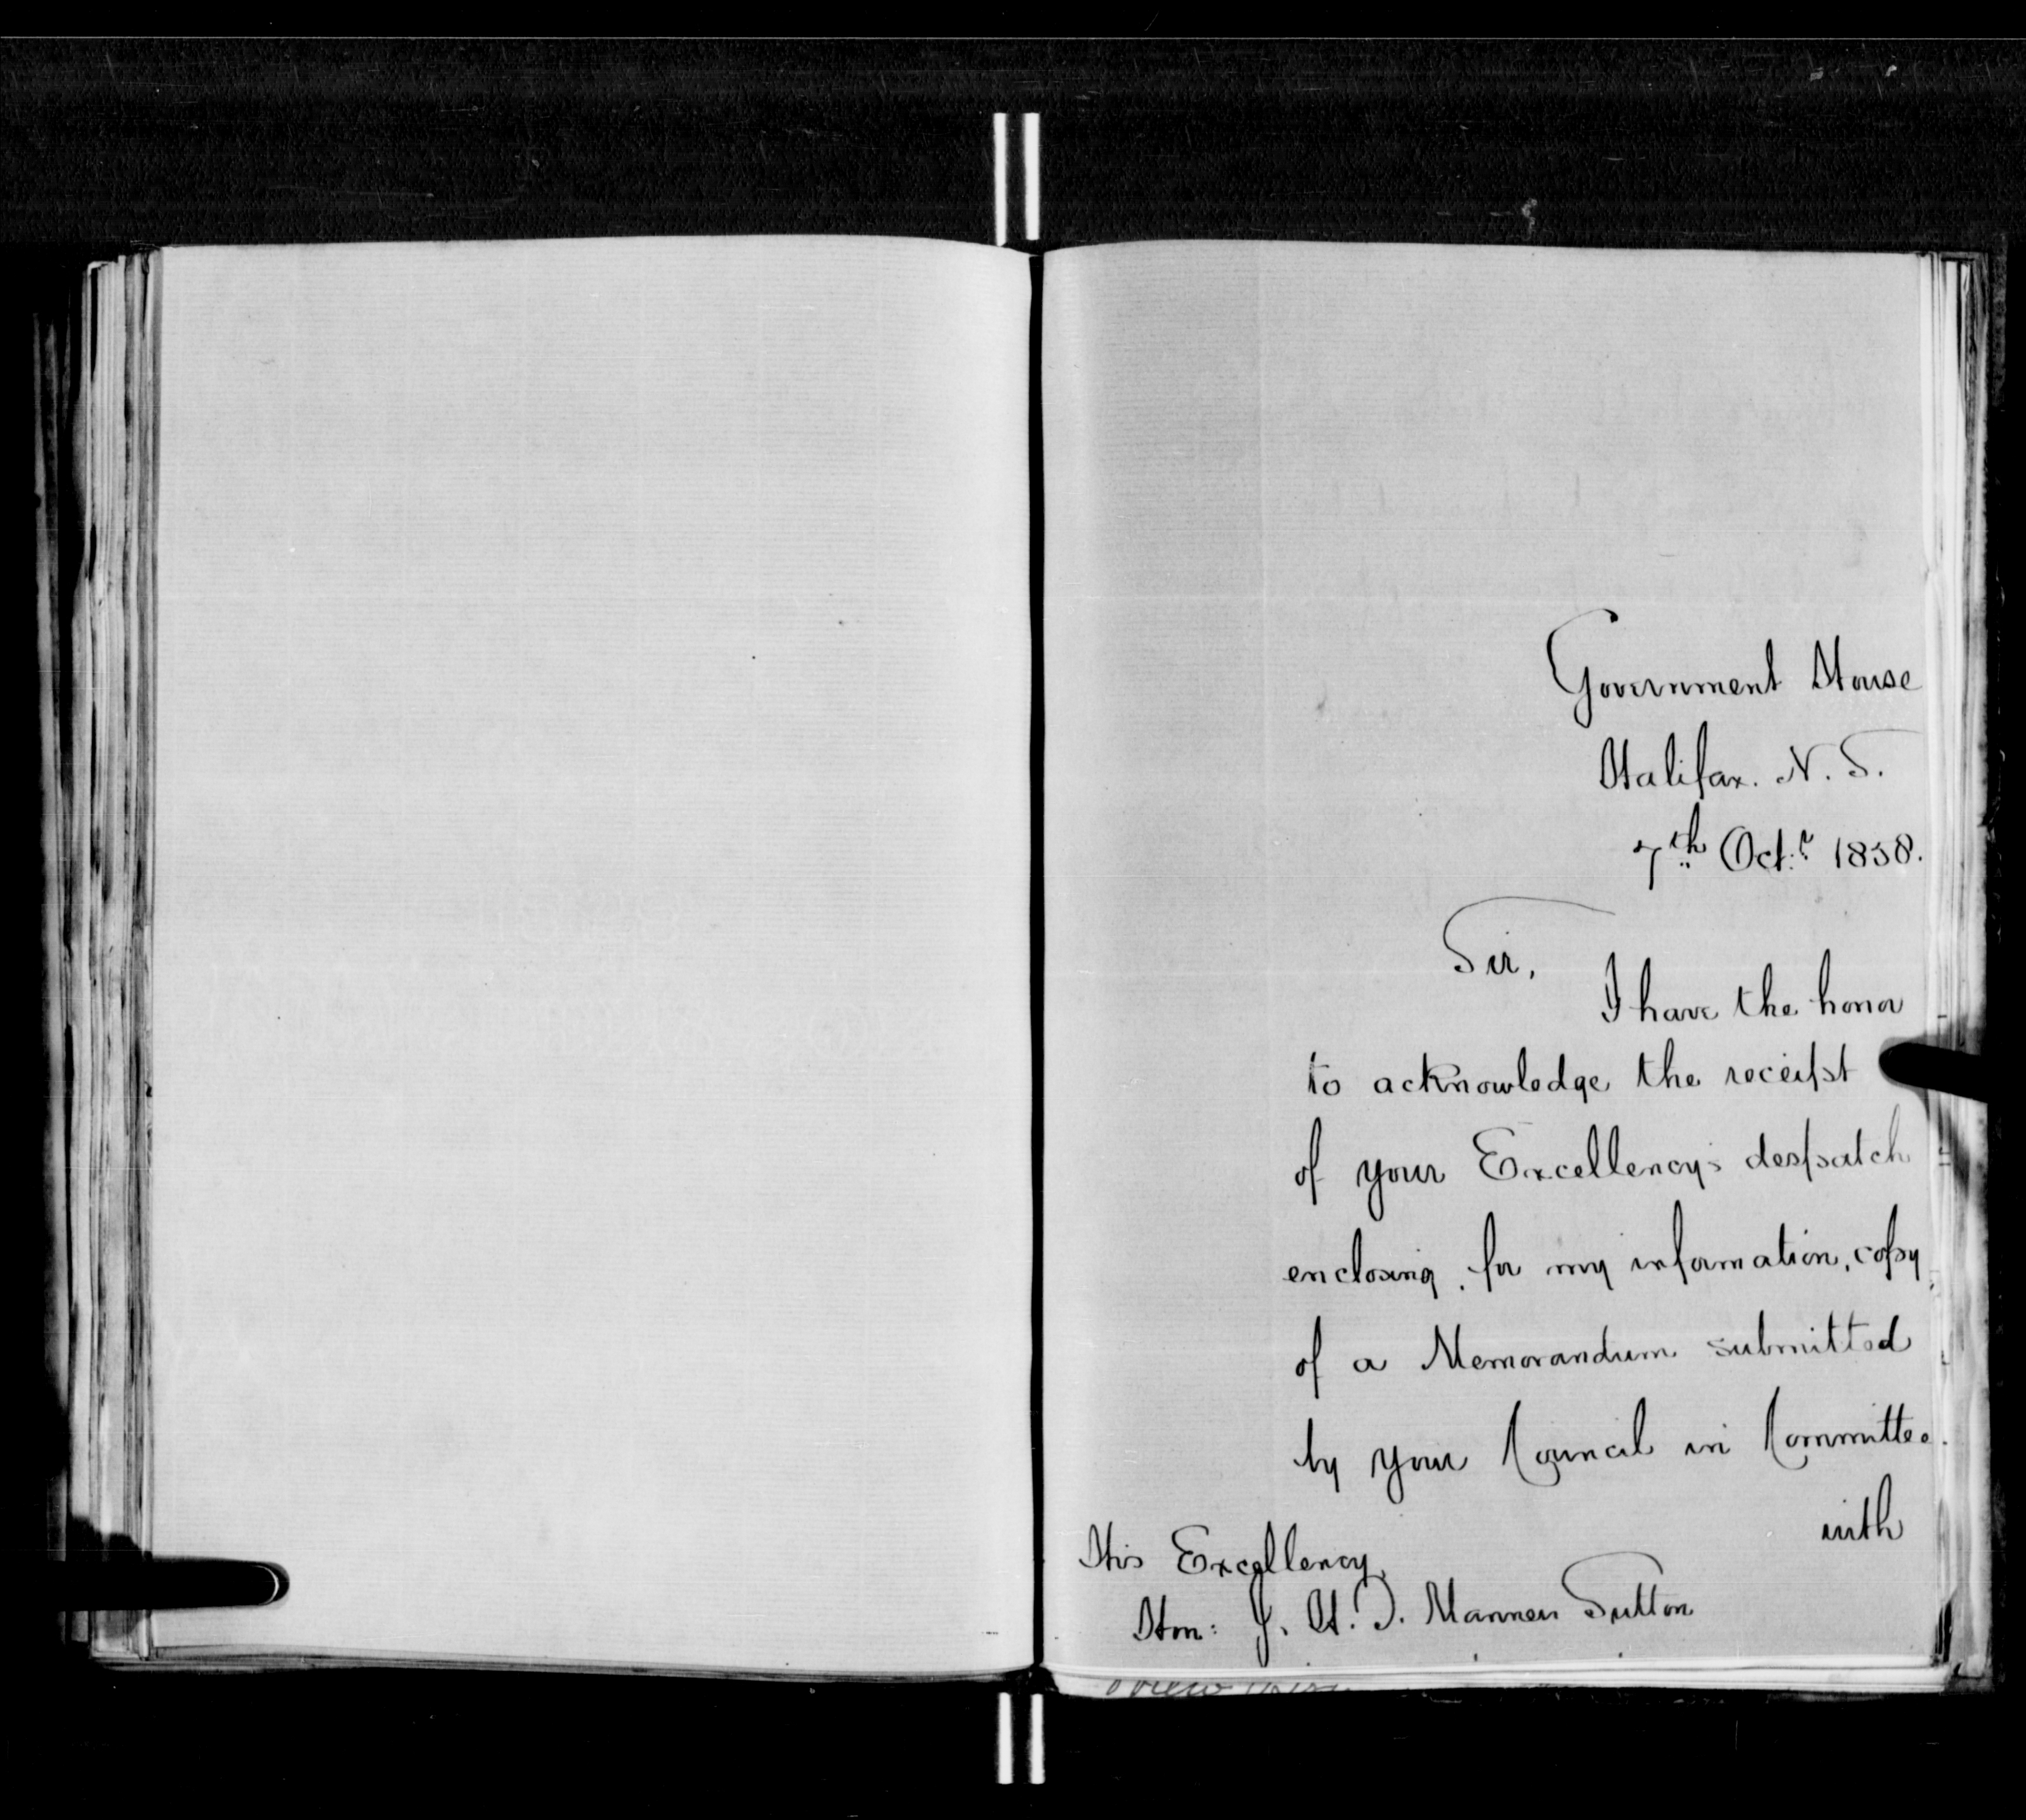 Government House
Halifax. N. S.
7th Oct:r 1858.
Sir,
I have the honor
to acknowledge the receipt
of your Excellency's despatch
enclosing, for my information, copy
of a Memorandum submitted
by your Council in Committee.
with
His Excellency
Hon: J. H. T. Manners Sutton